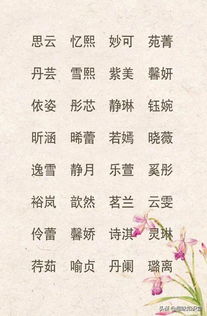 思云 忆熙 妙可 苑菁
丹芸 雪熙 紫美 馨妍
依姿 彤芯 静琳 钰婉
昕涵 晞蕾 若嫣 晓薇
逸雪 静月 乐萱 奚彤
裕岚 歆然 茗兰 云雯
伶蕾 馨娇 诗淇 灵琳
荮茹 喻贞 丹阑 璐离